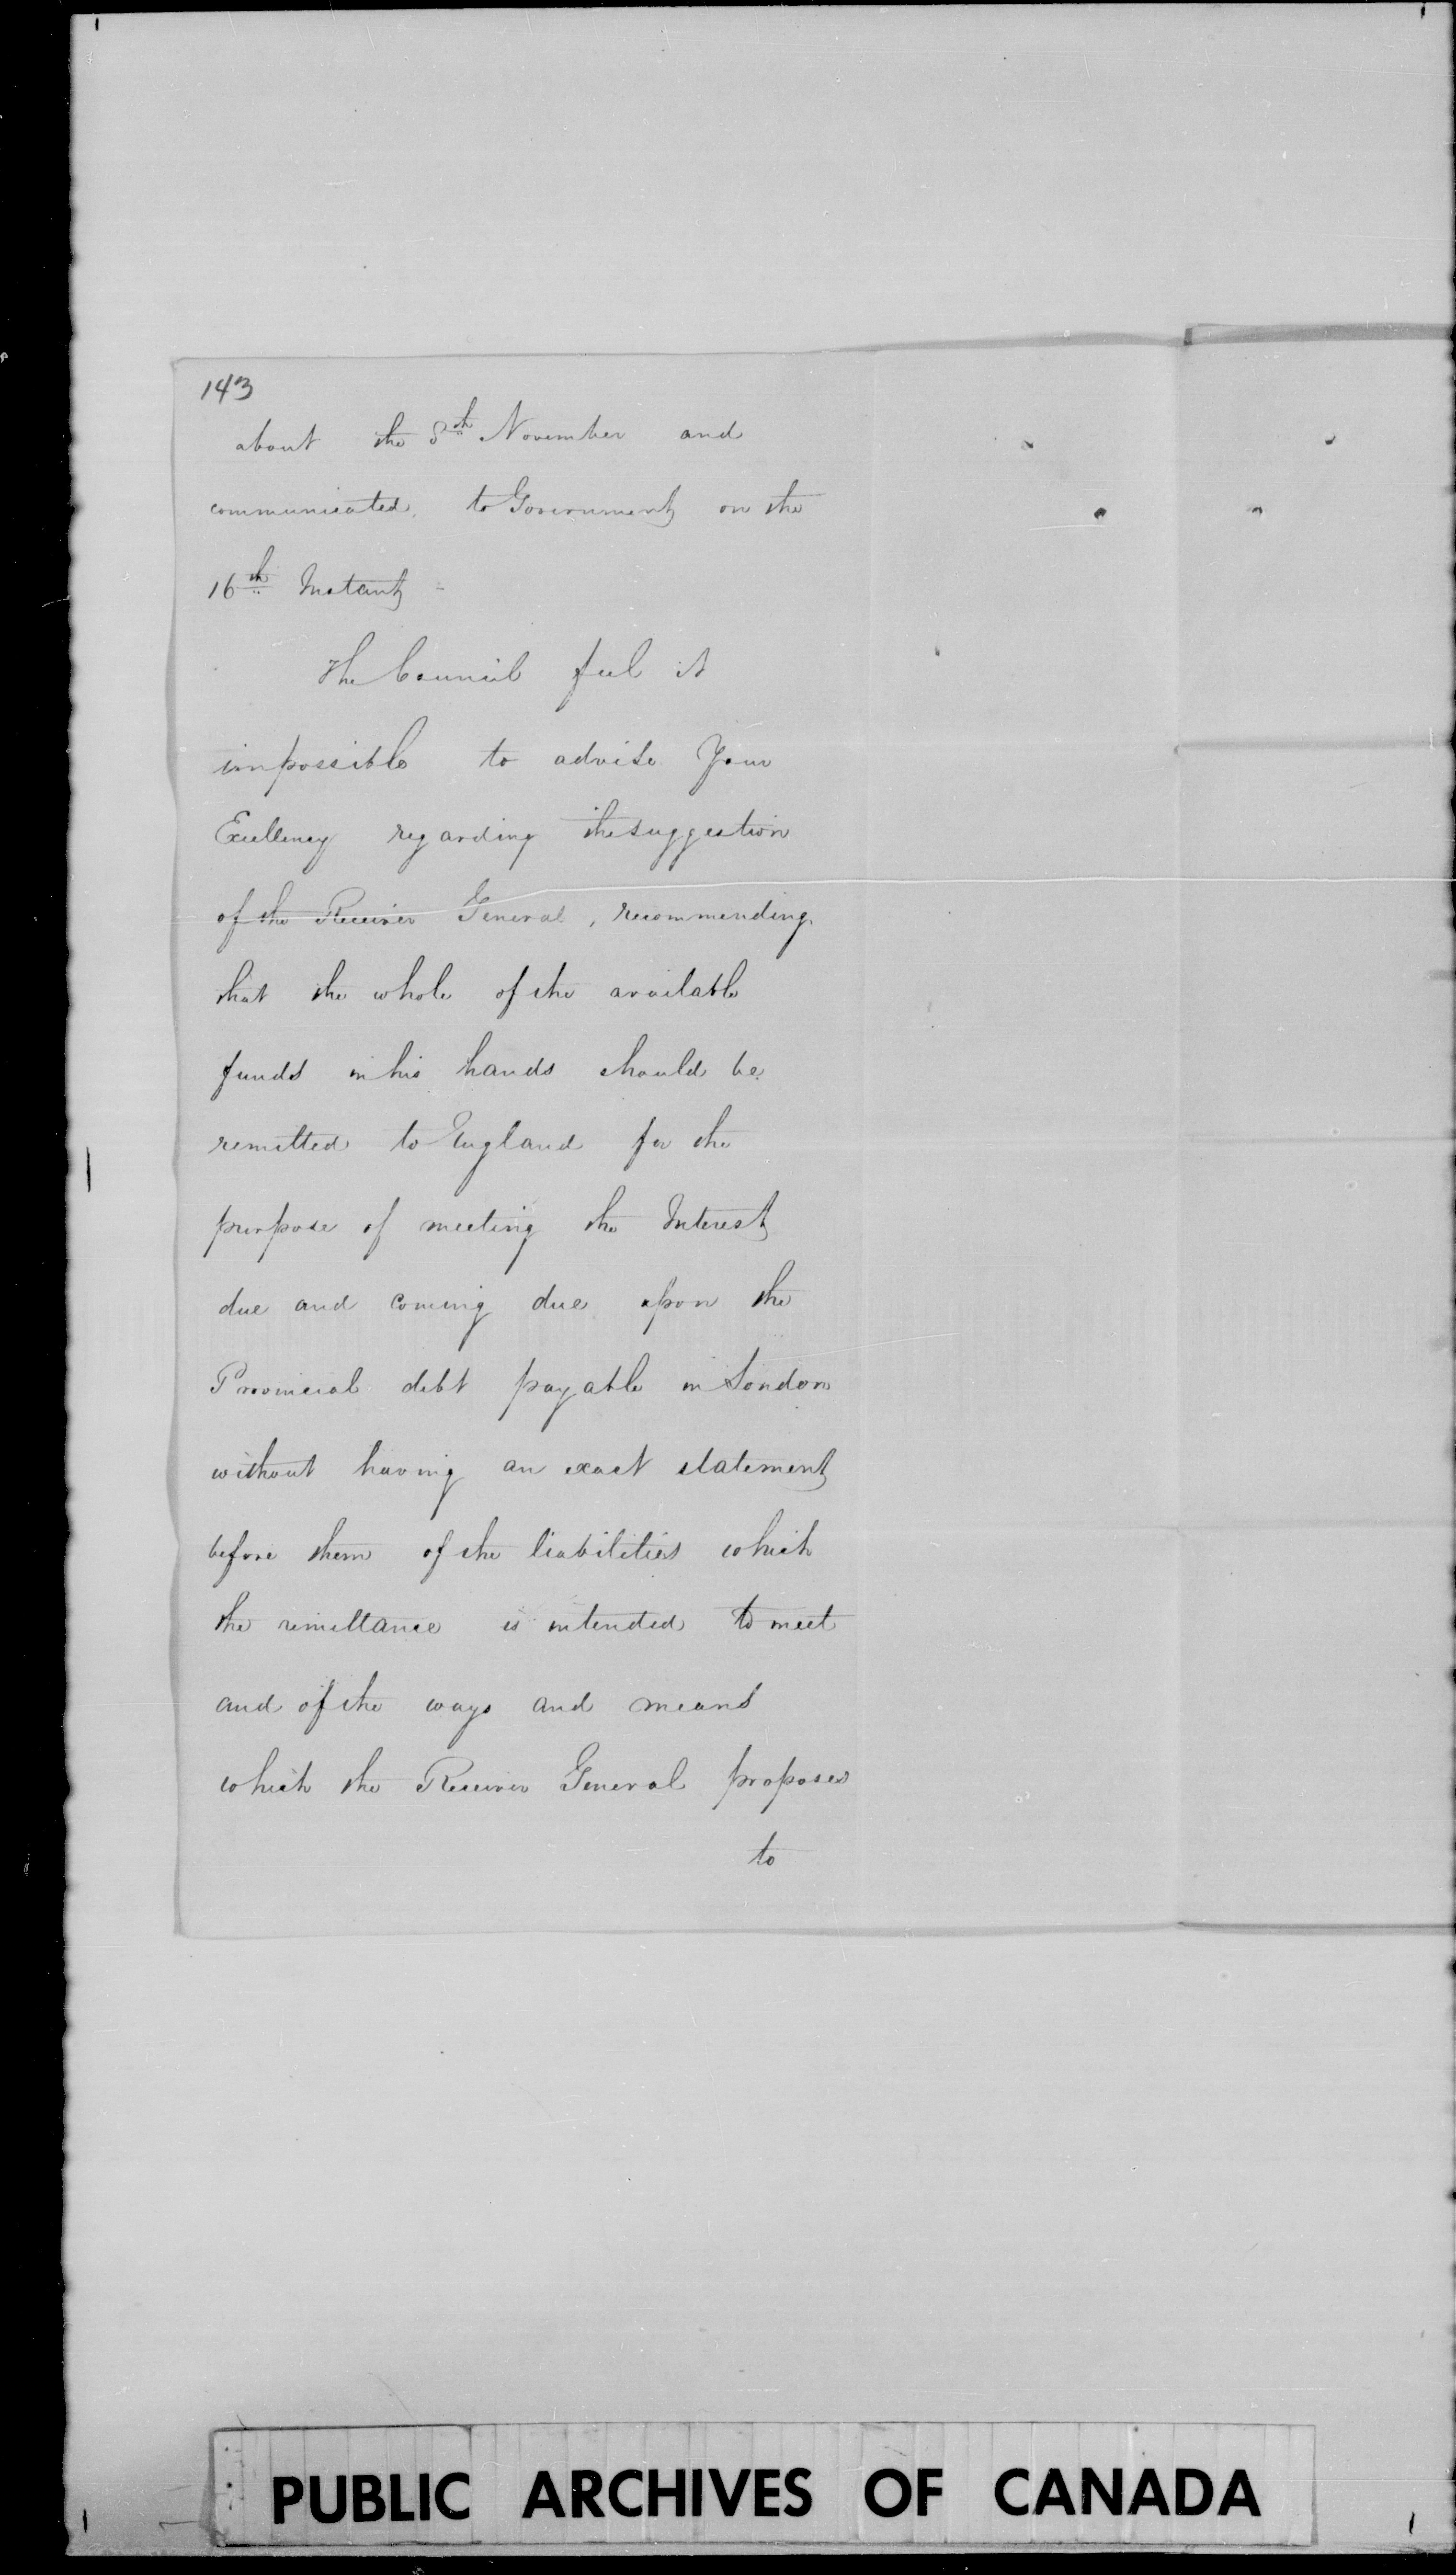 143
about the 8th November and
communicated to Government on the
16th Instant -
The Council feel it
impossible to advise Your
Excellency regarding the suggestion
of the Receiver General, recommending
that the whole of the available
funds in his hands should be
remitted to England for the
purpose of meeting the Interest
due and coming due upon the
Provincial debt payable in London
without having an exact statement
before them of the liabilities which
the remittance is intended to meet
and of the ways and means
which the Receiver General proposes
to
PUBLIC ARCHIVES OF CANADA